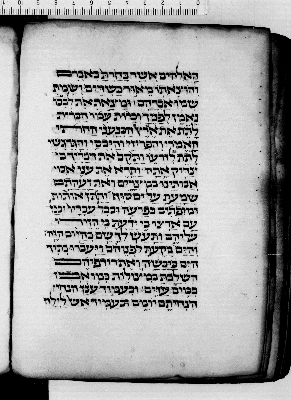 האלהים אשר בחרת באברם
והוצאתו מאור כשדים ושמת
שמו אברהם ומצאת את לבבו
נאמן לפניך וכרות עמו הברית
לתת את ארץ הכנעני החתי
האמרי והפרזי והיבוסי והגרגשי
לתת לזרעו ותקם את דבריך כי
צדיק אתה ותרא את עני
אבותינו במצרים ואת זעקתם
שמעת על ים סוף ותתן אותות
ומופתים בפרעה ובכל עבדיו ובכל
עם ארצו כי ידעת כי הזידו
עליהם ותעש לך שם כהיום הזה
והים בקעת לפניהם ויעברו בתוך
הים ביבשה ואת רודפיהם
השלכת במצולות כמו אבן
במים עזים ובעמוד ענן
הנחיתם יומם ובעמוד אש לילה